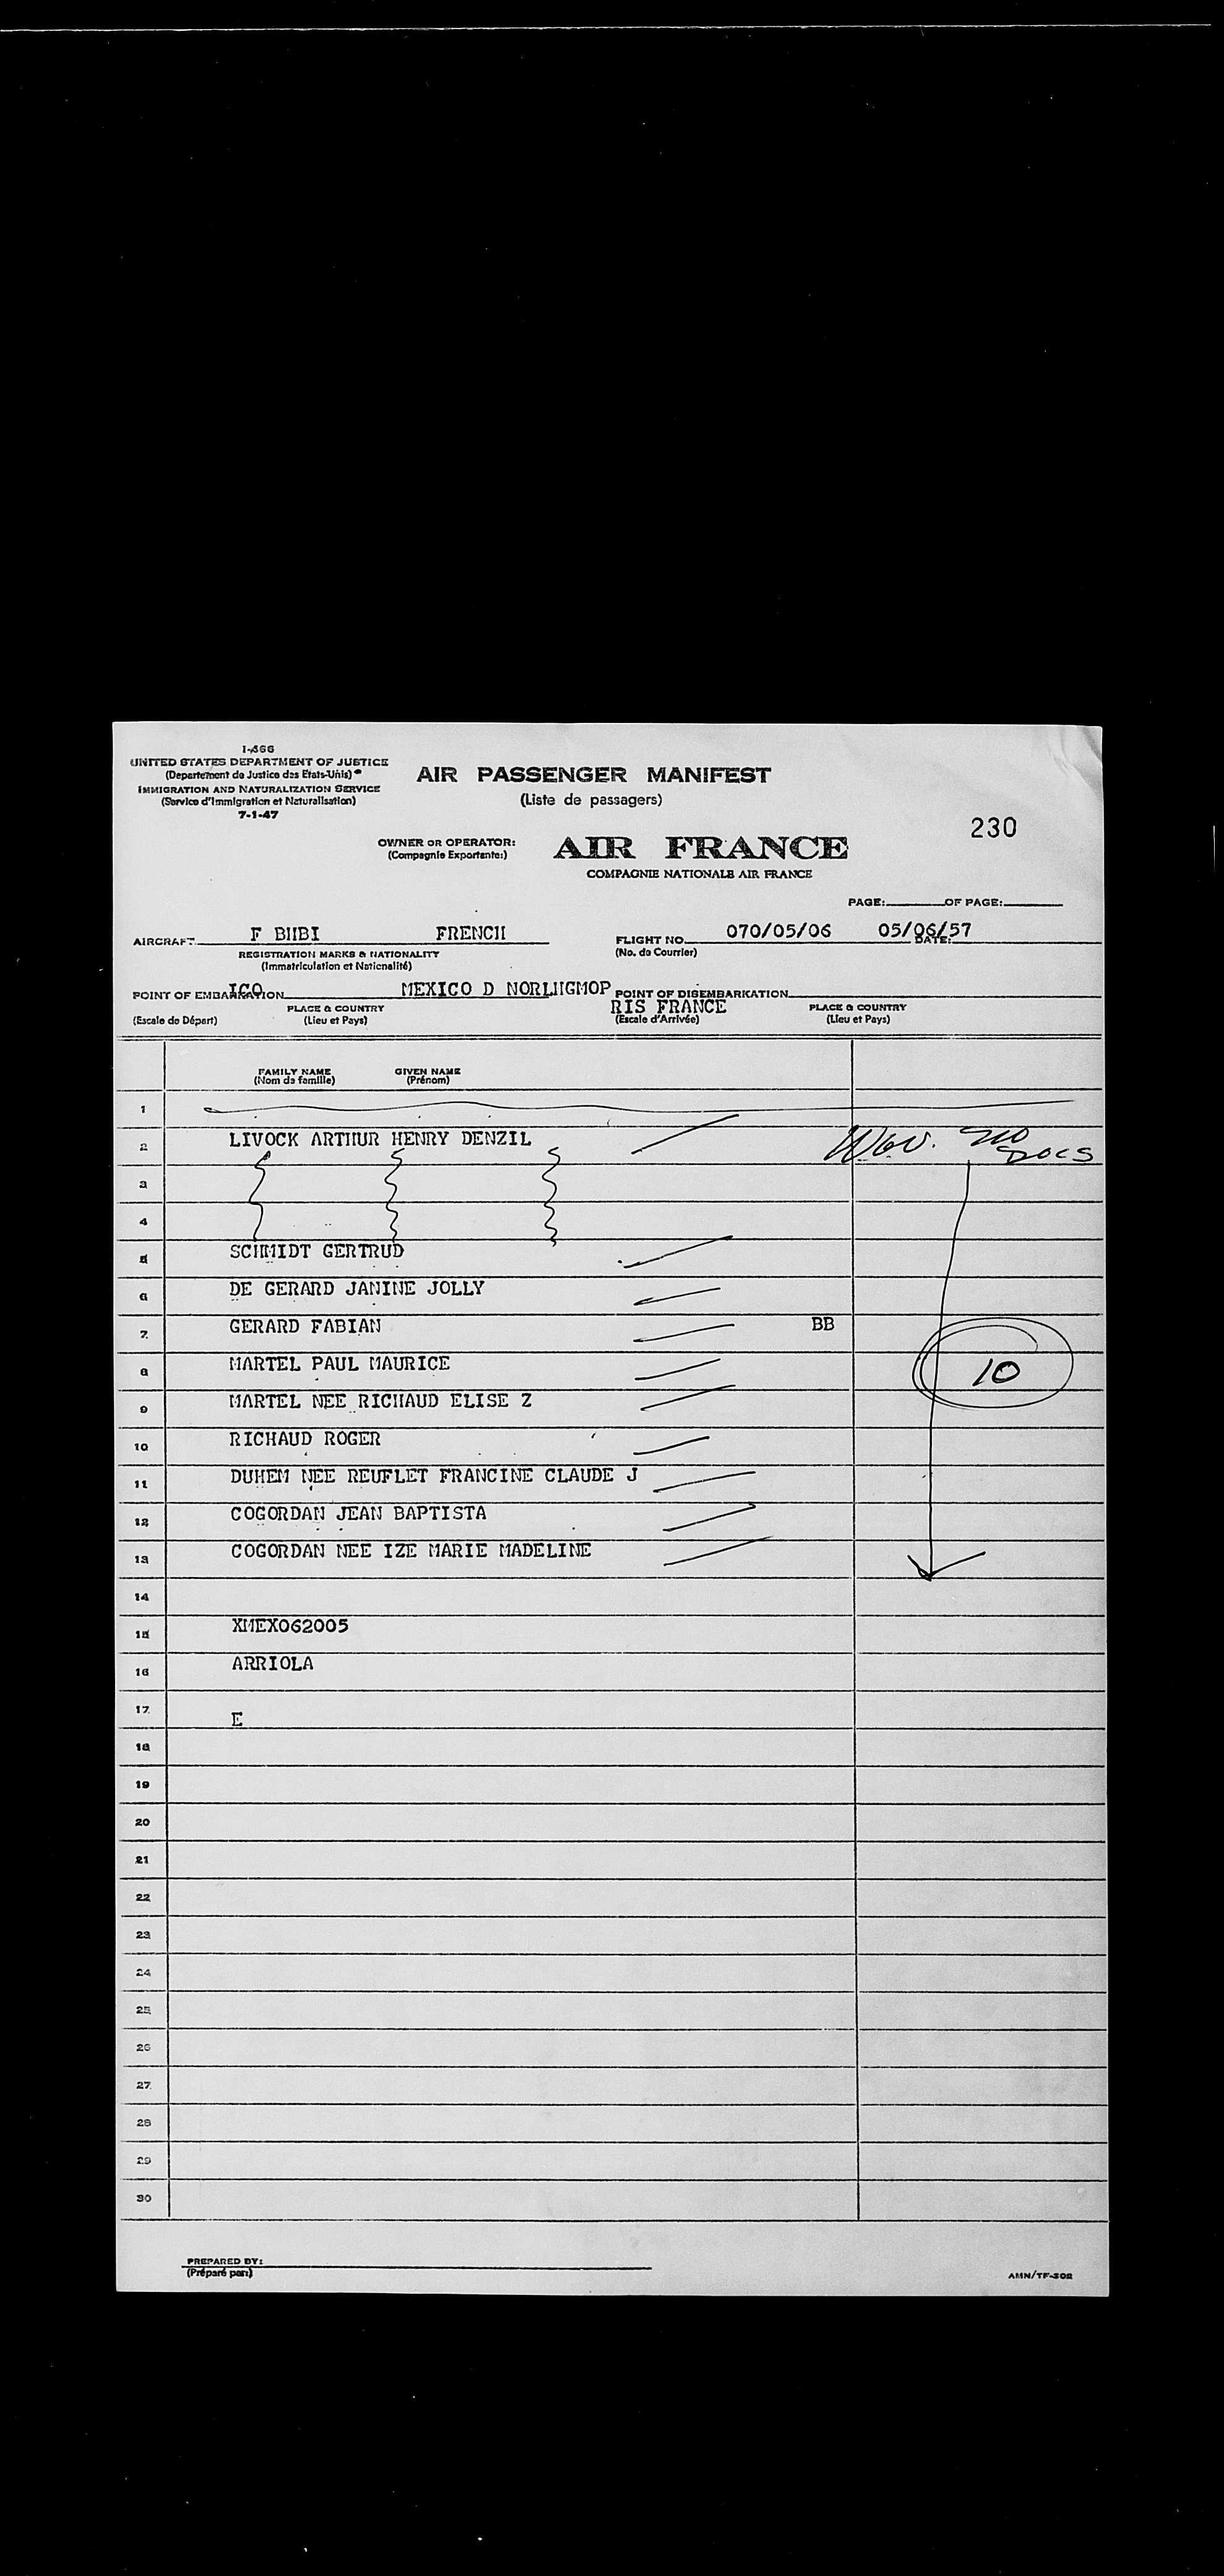 I-466
UNITED STATES DEPARTMENT OF JUSTICE
(Departement de Justice des Etats-Unis)
IMMIGRATION AND NATURALIZATION SERVICE
(Service d'Immigration et Naturalisation)
7-1-47
AIR PASSENGER MANIFEST
(Liste de passagers)
230
OWNER OR OPERATOR:
(Compagnie Exportante:)
AIR FRANCE
COMPAGNIE NATIONALE AIR FRANCE
PAGE: OF PAGE:
AIRCRAFT F BHBI FRENCH FLIGHT NO. 070/05/06 05/06/57 DATE:
REGISTRATION MARKS & NATIONALITY (No. de Courrier)
(Immatriculation et Nationalité)
POINT OF EMBARKATION ICO MEXICO D NORLHGMOP POINT OF DISEMBARKATION
PLACE & COUNTRY RIS FRANCE PLACE & COUNTRY
(Escale de Départ) (Lieu et Pays) (Escale d'Arrivée) (Lieu et Pays)
FAMILY NAME GIVEN NAME
(Nom de famille) (Prénom)
1
2 LIVOCK ARTHUR HENRY DENZIL NO DOCS
3
4
5 SCHMIDT GERTRUD
6 DE GERARD JANINE JOLLY
7 GERARD FABIAN BB
8 MARTEL PAUL MAURICE 10
9 MARTEL NEE RICHAUD ELISE Z
10 RICHAUD ROGER
11 DUHEM NEE REUFLET FRANCINE CLAUDE J
12 COGORDAN JEAN BAPTISTA
13 COGORDAN NEE IZE MARIE MADELINE
14
15 XMEX062005
16 ARRIOLA
17 E
18
19
20
21
22
23
24
25
26
27
28
29
30
PREPARED BY:
(Préparé par:)
AMN/TF-302